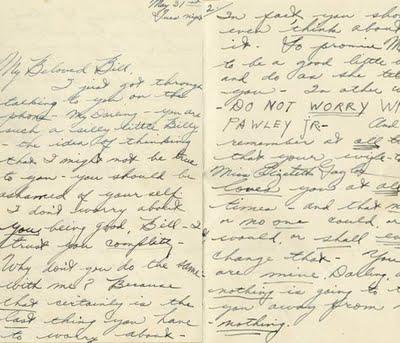 May 31st
Tues night
My Beloved Bill,
I just got through
talking to you on the
phone - My Darling - you are
such a silly little Billy
- the idea of thinking
that I might not be true
to you - you should be
ashamed of your self
I don't worry about
you being good, Bill - I
trust you completly -
Why don't you do the same
with me? Because
that certainly is the
last thing you have
to worry about -
2/
In fact, you sho
even think about
it. So promise M
to be a good little
and do as she tel
you - In other w
- DO NOT WORRY W
PAWLEY JR - And
remember at all t
that your wife-to
Miss Elizabeth Tayl
loves you at al
times - and that n
or no one could, or
would, or shall e
change that - You
are mine, Darling, a
nothing is going to t
you away from
nothing.